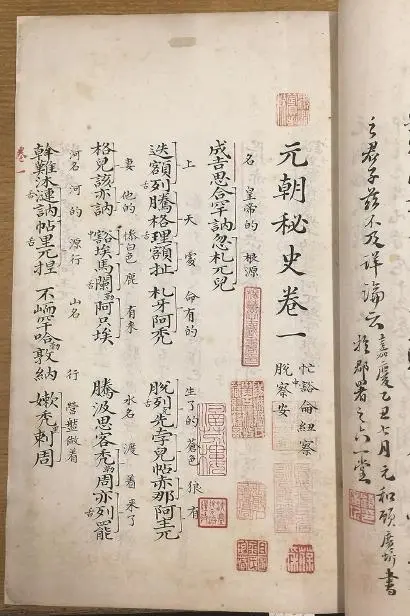 之君子茲不及詳論云嘉慶乙丑七月元和顧廣圻書
於郡署之六一堂
元朝秘史卷一
忙豁侖紐察
脫察安
名 皇帝的 根源
成吉思合罕訥忽札兀兒
上 天處 命有的 生了的 蒼色 狼 有
迭額列騰格理額扯 札牙阿禿 脫列先孛兒帖赤那阿主兀
妻 他的 慘白色鹿 有来 水名 渡着来了
格兒該亦訥 豁埃馬闌勒阿只埃 騰汲思客禿周亦列罷
河名 河的 源行 山名 行 營盤做着
斡難沐漣訥帖里兀捏 不峏罕哈勒敦納 嫩禿剌周
卷一